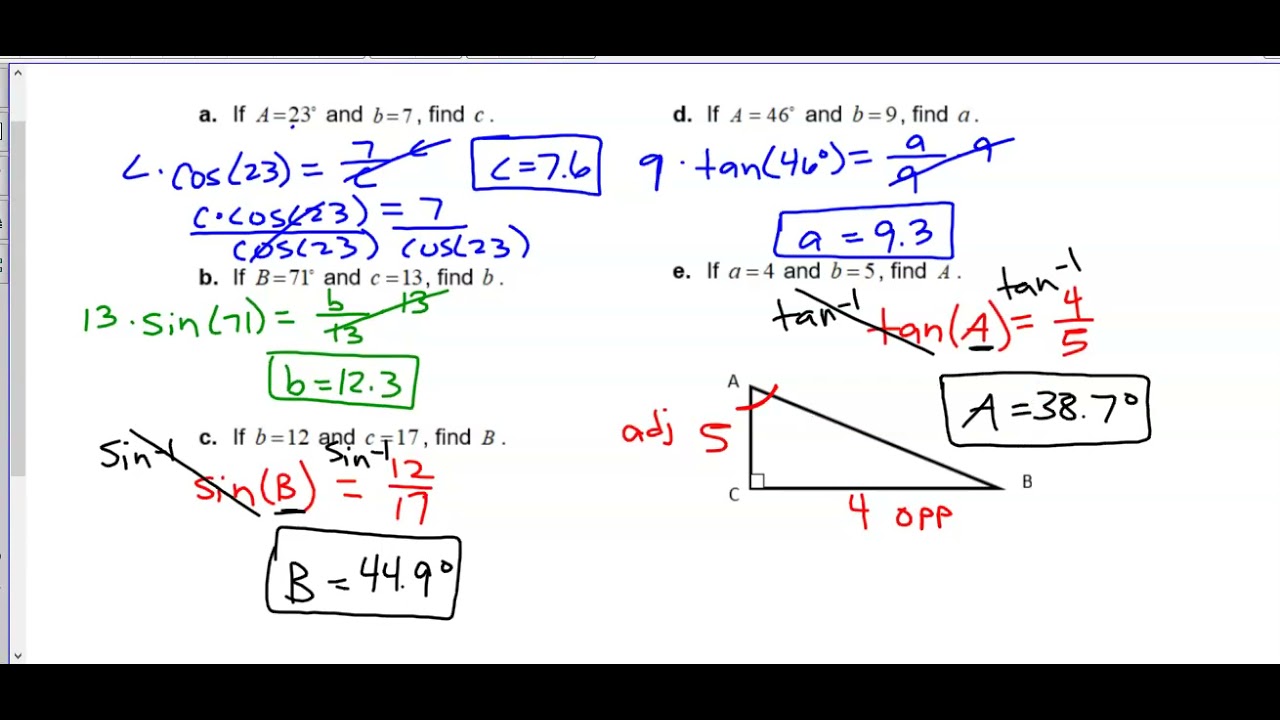 a. If A=23° and b=7, find c.
c · cos(23) = 7/c c
c=7.6
c·cos(23) = 7
cos(23) cos(23)
b. If B=71° and c=13, find b.
13 · sin(71) = b/13 13
b=12.3
c. If b=12 and c=17, find B.
sin-1 sin(B) = sin-1 12/17
B = 44.9°
d. If A = 46° and b=9, find a.
9 · tan(46°) = a/9 9
a = 9.3
e. If a=4 and b=5, find A.
tan-1 tan(A) = tan-1 4/5
A = 38.7°
A
adj 5
C
B
4 opp